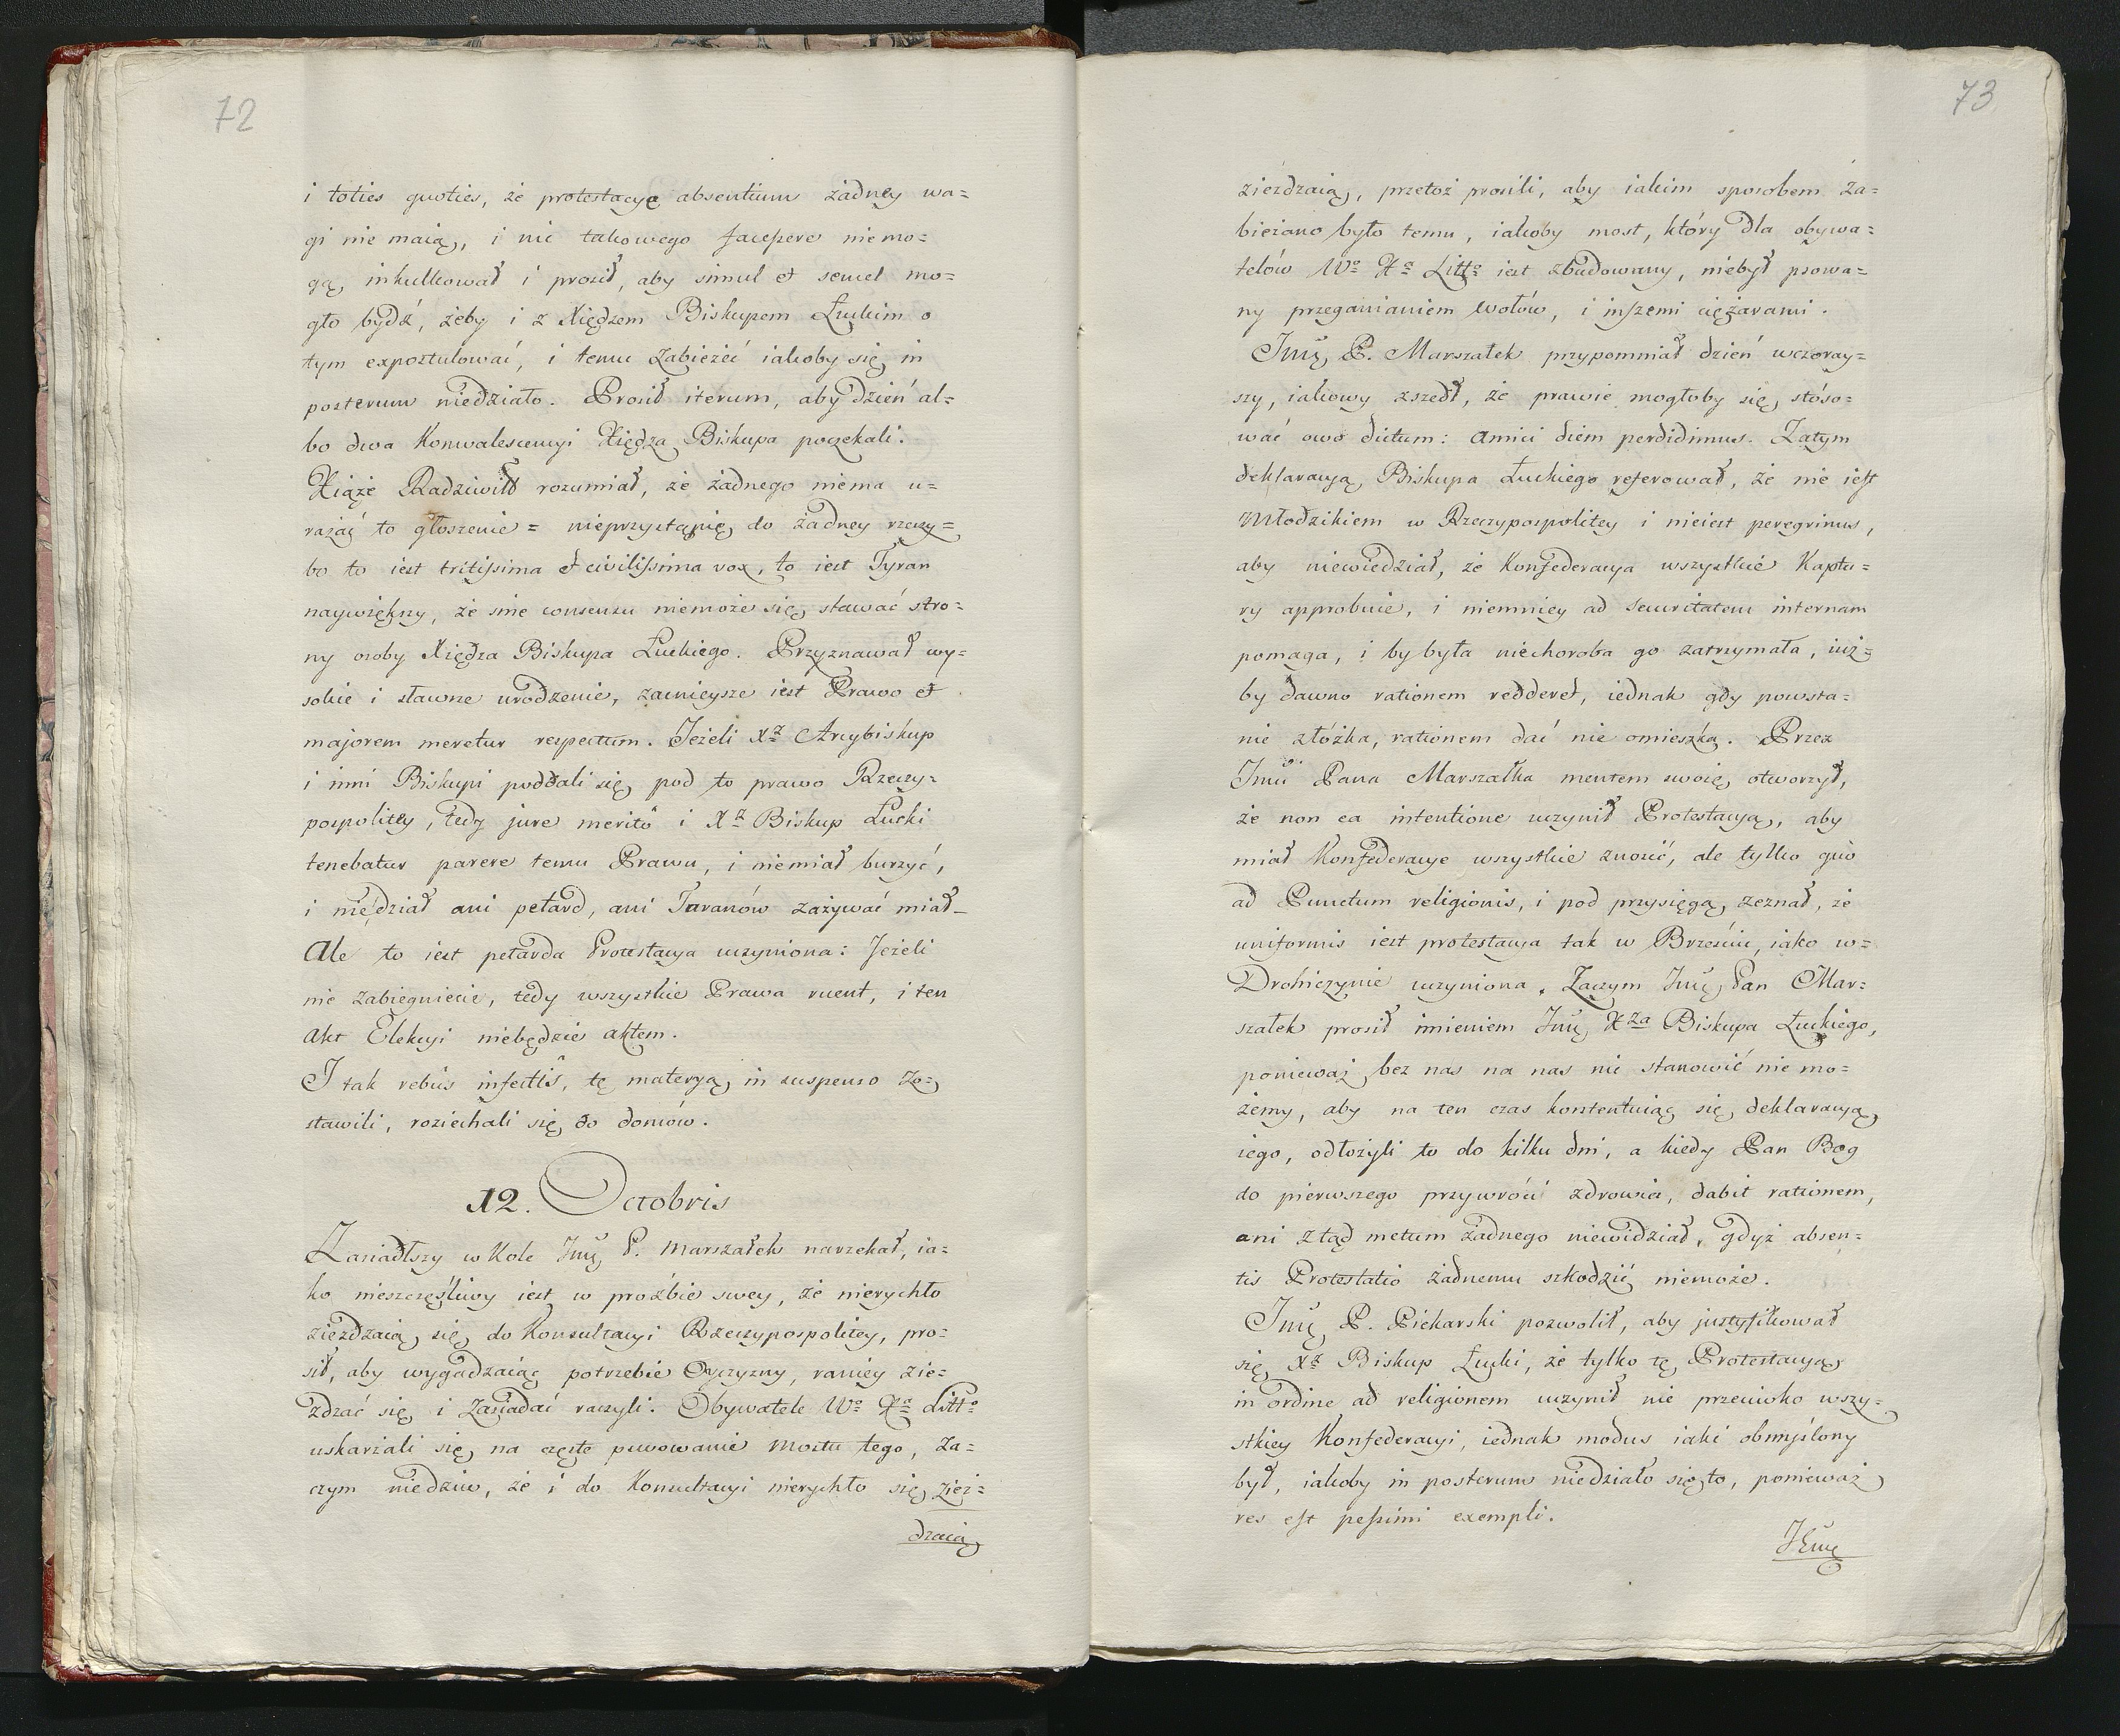 72
i toties quoties, że protestacye absentium żadney wa=
gi nie maią, i nic takowego facessere niemo=
gą, inkulkował i prosił, aby simul et semel mo=
gło bydź, żeby i z Xiędzem Biskupem Łuckim o
tym expostulować, i temu zabieżeć iakoby się in
posterum niedziało. Prosił iterum, aby dzień al=
bo dwa Konwalescencyi Xiędza Biskupa poczekali.
Xiąże Radziwiłł rozumiał, że żadnego niema u=
rażać to głoszenie = nieprzystąpię do żadney rzeczy=
bo to iest tritissima et civilissima vox, to iest Tyran
naywiększy, że sine consensu niemoże się stawać stro=
ny osoby Xiędza Biskupa Luckiego. Przyznawał wy=
sokie i sławne urodzenie, zacnieysze iest Prawo et
majorem meretur respectum. Jeżeli Xz Arcybiskup
i inni Biskupi poddali się pod to prawo Rzeczy=
pospolitey, tedy jure meritô i Xz Biskup Łucki
tenebatur parere temu Prawu, i niemiał burzyć,
i niedział ani petard, ani Taranów zażywać miał_
Ale to iest petarda Protestacya uczyniona: Jeżeli
nie zabiegniecie, tedy wszystkie Prawa ruent, i ten
Akt Elekcyi niebędzie aktem.
I tak rebus infectis, tę materyą in suspenso zo=
stawili, roziechali się do domów.
12. Octobris
Zasiadłszy w Kole Jmć P. Marszałek narzekał, ia=
ko nieszczęśliwy iest w proźbie swey, że nierychło
zieżdzaią się do Konsultacyi Rzeczypospolitey, pro=
sił, aby wygadzaiąc potrzebie Oyczyzny, raniey zie=
żdzać się i zasiadać raczyli. Obywatele Wo Xa Litto
uskarżali się na częste psuwowanie mostu tego, za=
czym niedziw, że i do Konsultacyi nierychło się zież=
dzaią
73
zieżdzaią, przetoż prosili, aby iakim sposobem za=
bieżano było temu, iakoby most, który dla obywa=
telów Wo Xa Litto iest zbudowany, niebył psowa=
ny przeganianiem wołów, i inszemi ciężarami.
Jmć P. Marszałek przypomniał dzień wczoray=
szy, iakowy zszedł, że prawie mogłoby się stóso=
wać owo dictum: Amici diem perdidimus. Zatym
deklaracyą Biskupa Łuckiego referował, że nie iest
Młodzikiem w Rzeczypospolitey i nieiest peregrinus,
aby niewiedział, że Konfederacya wszystkie Kaptu=
ry approbuie, i niemniey ad securitatem internam
pomaga, i by była niechoroba go zatrzymała, iuż=
by dawno rationem redderet, iednak gdy powsta=
nie złóżka, rationem dać nie omieszka. Przez
Jmć Pana Marszałka mentem swoię otworzył,
że non ea intentione uczynił Protestacyą, aby
miał Konfederacye wszystkie znosić, ale tylko quò
ad Punctum religionis, i pod przysięgą zeznał, że
uniformis iest protestacya tak w Brześciu, iako w=
Drohiczynie uczyniona. Zaczym Jmć Pan Mar=
szałek prosił imieniem Jmć Xza Biskupa Łuckiego,
ponieważ bez nas na nas nic stanowić nie mo=
żemy, aby na ten czas kontentuiąc się deklaracyą
iego, odłożyli to do kilku dni, a kiedy Pan Bog
do pierwszego przywróci zdrowia, dabit rationem,
ani ztąd metum żadnego niewidział, gdyż absen=
tis Protestatio żadnemu szkodzić niemoże.
Jmć P. Piekarski pozwolił, aby justyfikował
się Xz Biskup Łucki, że tylko tę Protestacyą
in ordine ad religionem uczynił nie przeciwko wszy=
stkiey Konfederacyi, iednak modus iaki obmyślony
był, iakoby in posterum niedziało się to, ponieważ
res est pessimi exempli.
JEmć